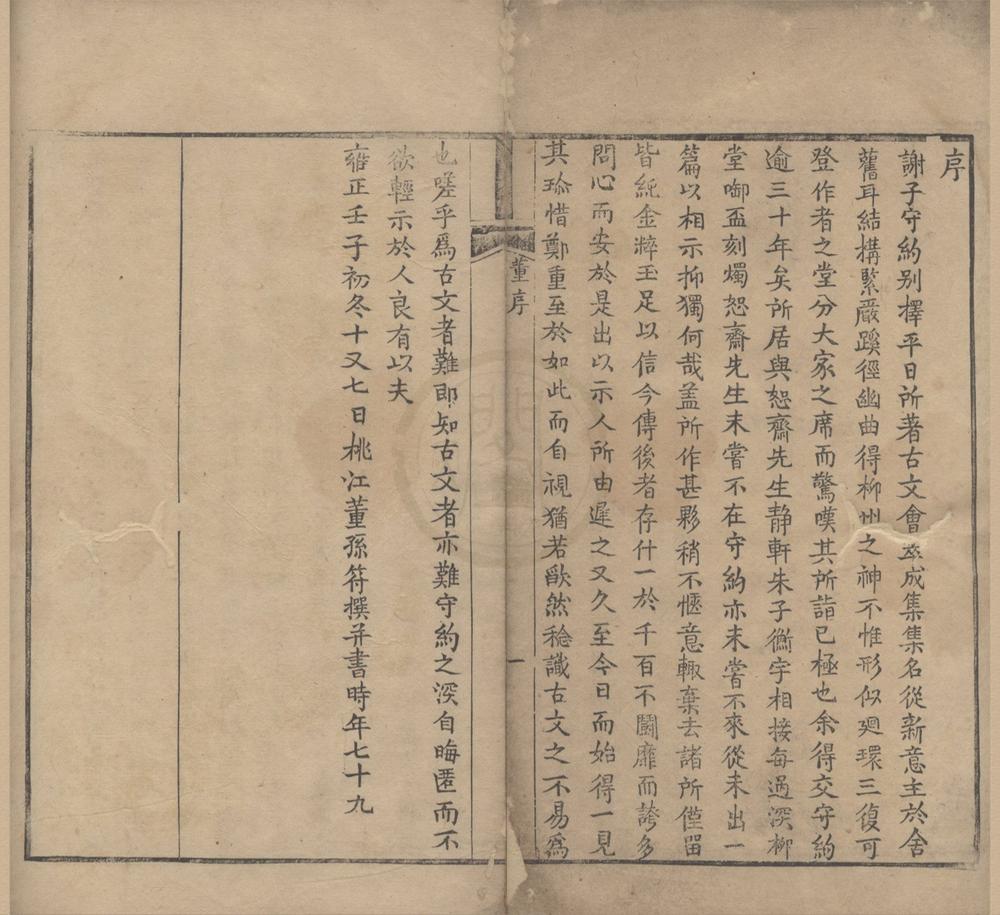 序
謝子守約别擇平日所著古文會萃成集集名從新意主於舍
舊耳結搆緊嚴蹊徑幽曲得柳州之神不惟形似廻環三復可
登作者之堂分大家之席而驚嘆其所詣已極也余得交守約
逾三十年矣所居與恕齋先生静軒朱子衡宇相接每過深柳
堂啣盃刻燭恕齋先生未嘗不在守約亦未嘗不來從未出一
篇以相示抑獨何哉盖所作甚夥稍不愜意輙棄去諸所僅留
皆純金粹玉足以信今傳後者存什一於千百不鬭靡而誇多
問心而安於是出以示人所由遲之又久至今日而始得一見
其珎惜鄭重至於如此而自視猶若歉然稔識古文之不易為
董序
一
也嗟乎爲古文者難即知古文者亦難守約之深自晦匿而不
欲輕示於人良有以夫
雍正壬子初冬十又七日桃江董孫符撰并書時年七十九